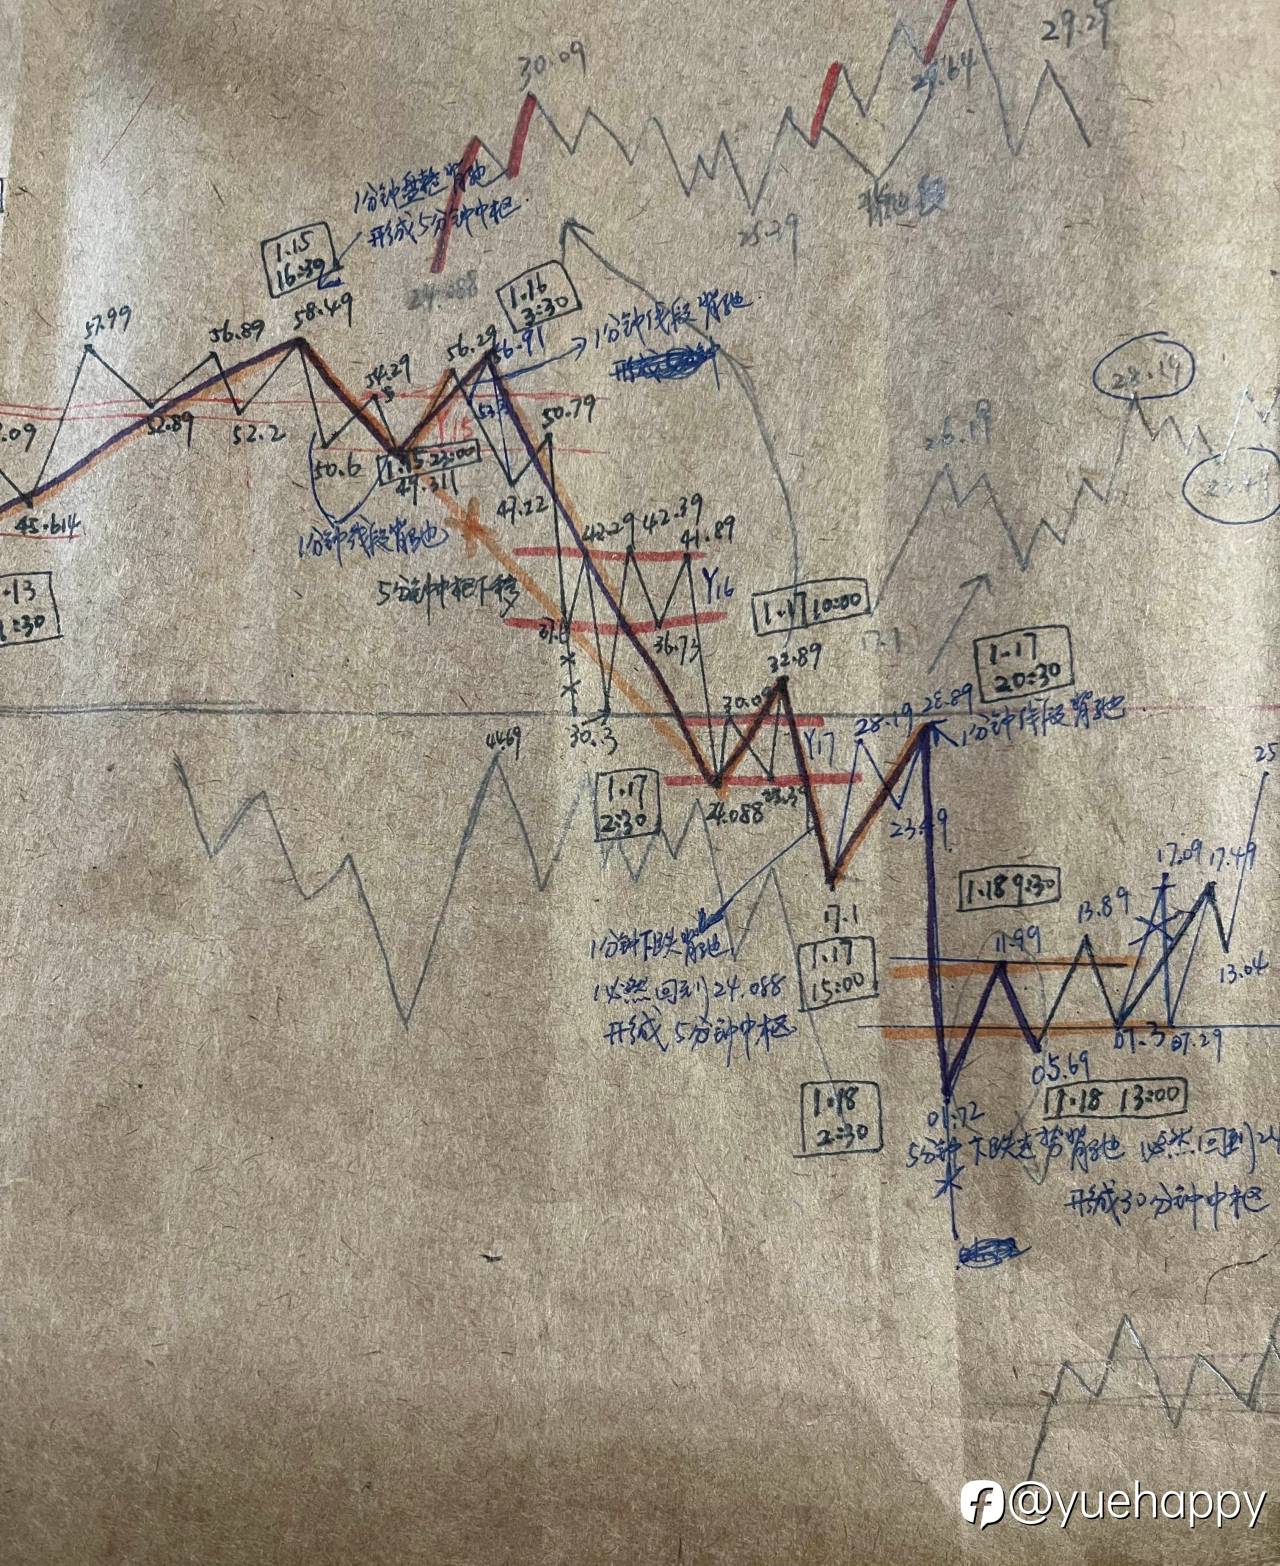 30.09
29.29
29.64
1分钟盘整背驰
形成5分钟中枢
1.15
16:39
24.088
25.29
背驰段
58.49
57.99
56.89
1.16
3:30
1分钟线段背驰
54.29
56.29
56.91
28.19
52.89
52.2
50.79
26.19
50.6
Y15
1.15 23:00
49.311
47.22
45.614
1分钟线段背驰
5分钟中枢下移
42.29
42.39
41.89
Y16
1.17 10:00
36.73
32.89
17.1
1.17
20:30
30.3
28.19
28.89
1分钟线段背驰
Y17
44.69
1.17
2:30
24.088
23.49
1.18 9:30
17.09
17.49
13.89
11.99
13.04
17.1
1.17
15:00
1分钟下跌背驰
必然回到24.088
形成5分钟中枢
07.3
07.29
05.69
1.18
2:30
01.72
1.18 13:00
5分钟下跌走势背驰 必然回到24
形成30分钟中枢
@yuehappy